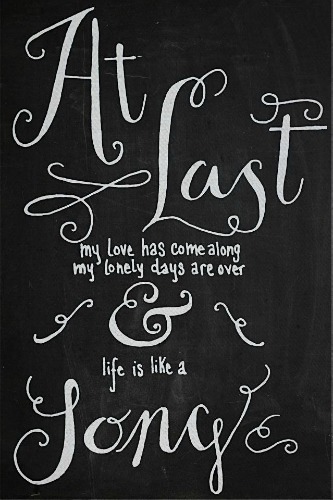 At
Last
my love has come along
my lonely days are over
&
life is like a
Song